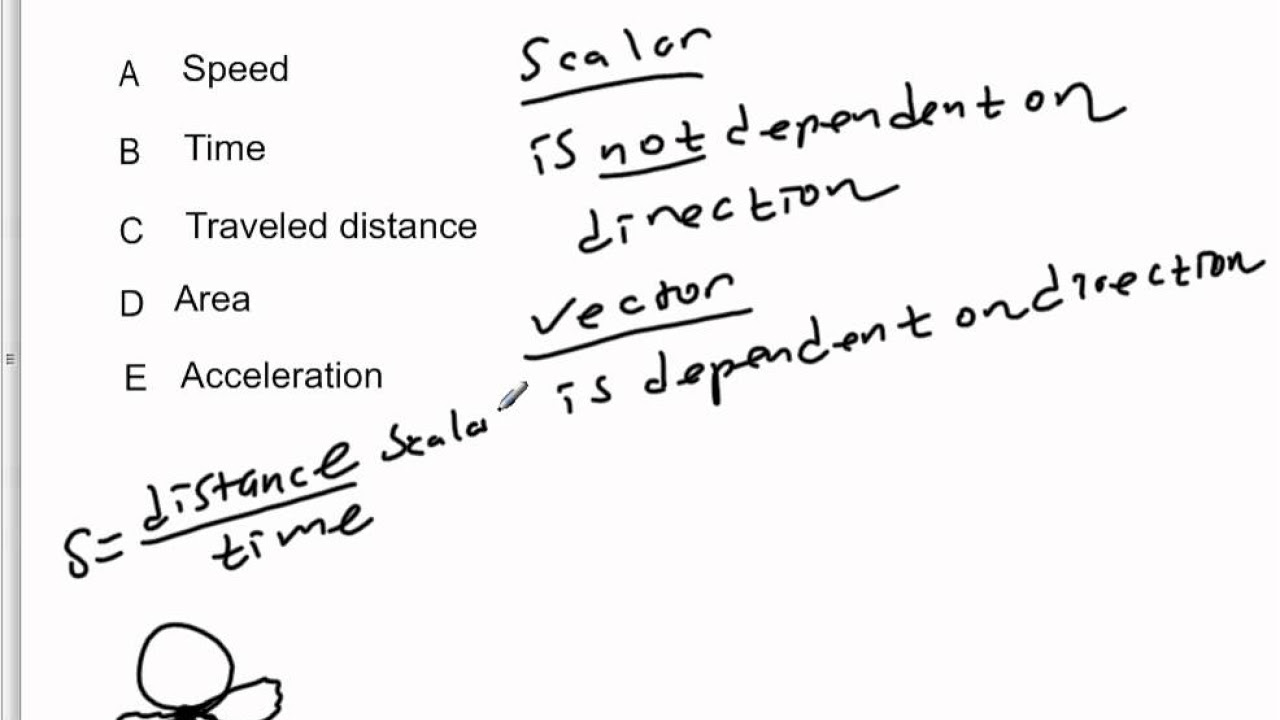 A Speed
B Time
C Traveled distance
D Area
E Acceleration
Scalar
is not dependent on
direction
vector
is dependent on direction
S = distance / time scalar